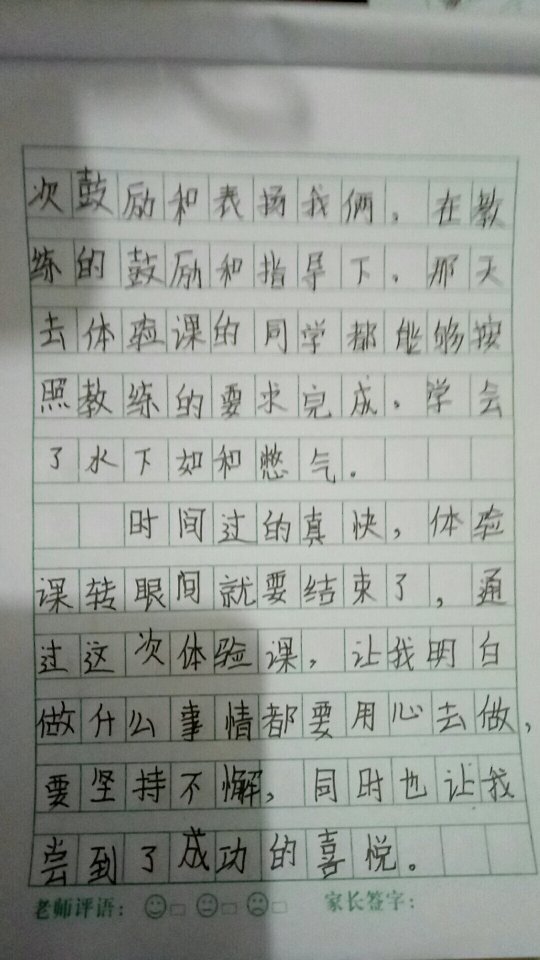 次鼓励和表扬我俩，在教
练的鼓励和指导下，那天
去体验课的同学都能够按
照教练的要求完成，学会
了水下如和憋气。
时间过的真快，体验
课转眼间就要结束了，通
过这次体验课，让我明白
做什么事情都要用心去做，
要坚持不懈，同时也让我
尝到了成功的喜悦。
老师评语： 家长签字：